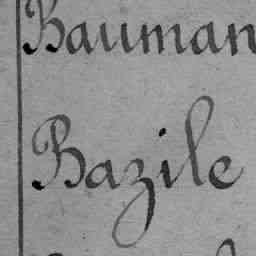 Bauman
Bazile